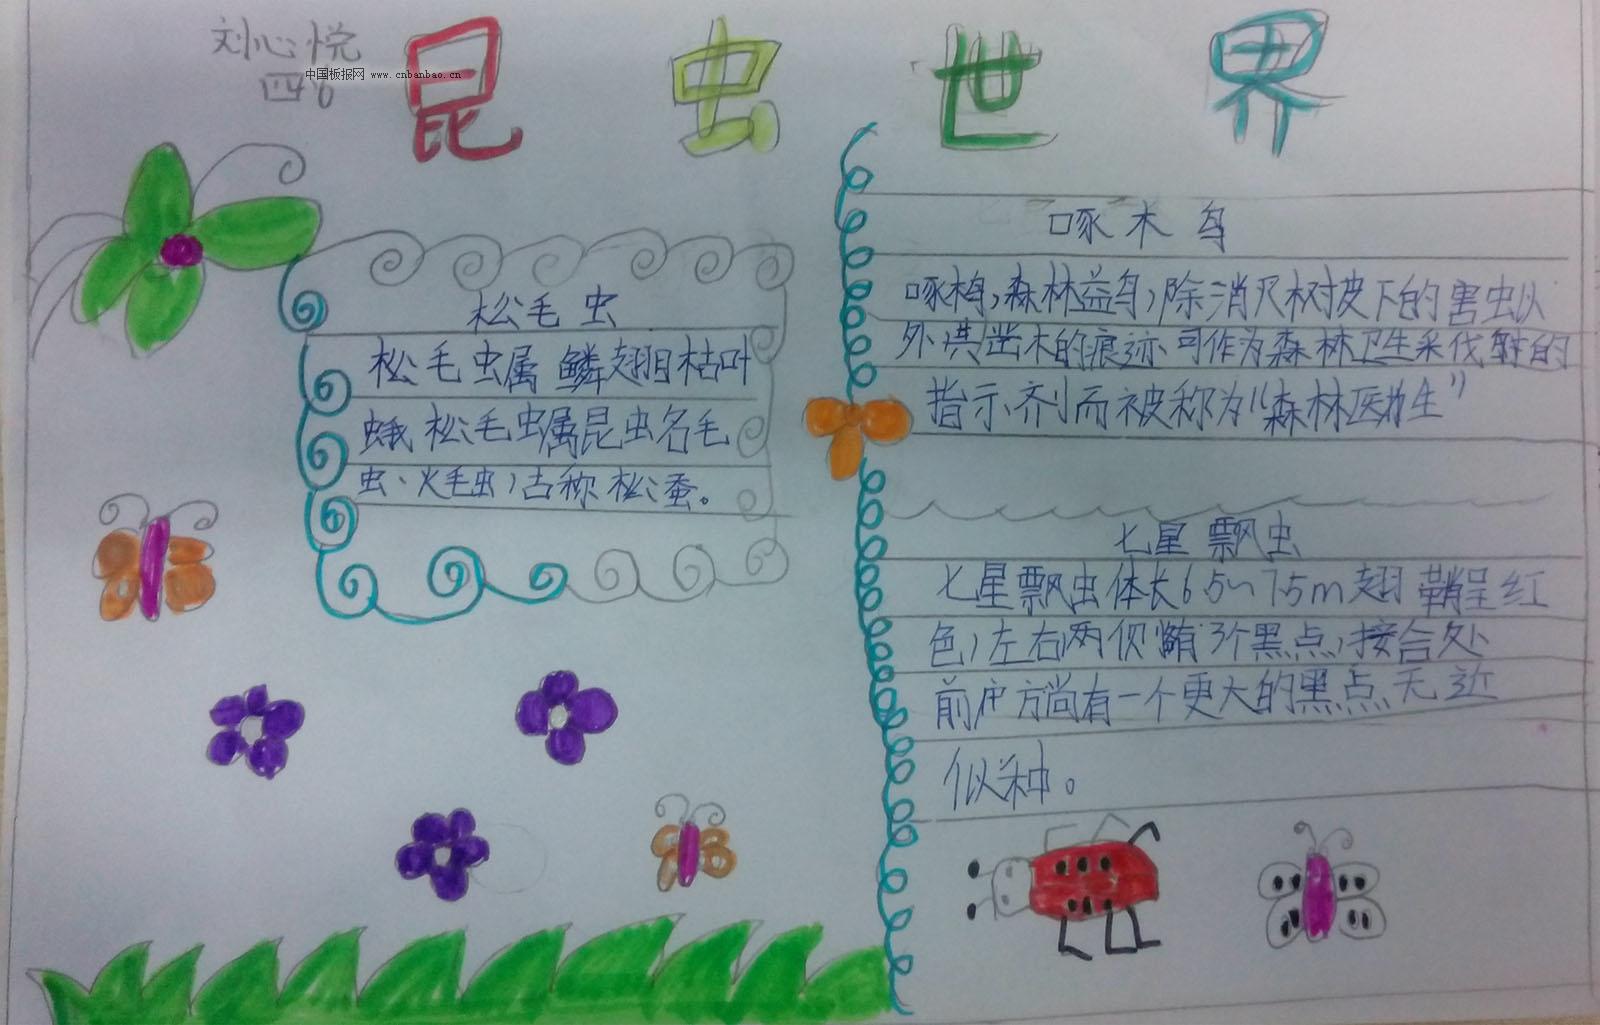 刘心悦
四6
中国板报网 www.cnbanbao.cn
昆虫世界
松毛虫
松毛虫属鳞翅目枯叶
蛾松毛虫属昆虫名毛
虫、火毛虫,古称松蚕。
啄木鸟
啄木鸟,森林益鸟,除消灭树皮下的害虫以
外其凿木的痕迹可作为森林卫生采伐的
指示剂而被称为“森林医生”
七星飘虫
七星飘虫体长6.5~7.5m翅鞘呈红
色,左右两侧有3个黑点,接合处
前方尚有一个更大的黑点无近
似种。